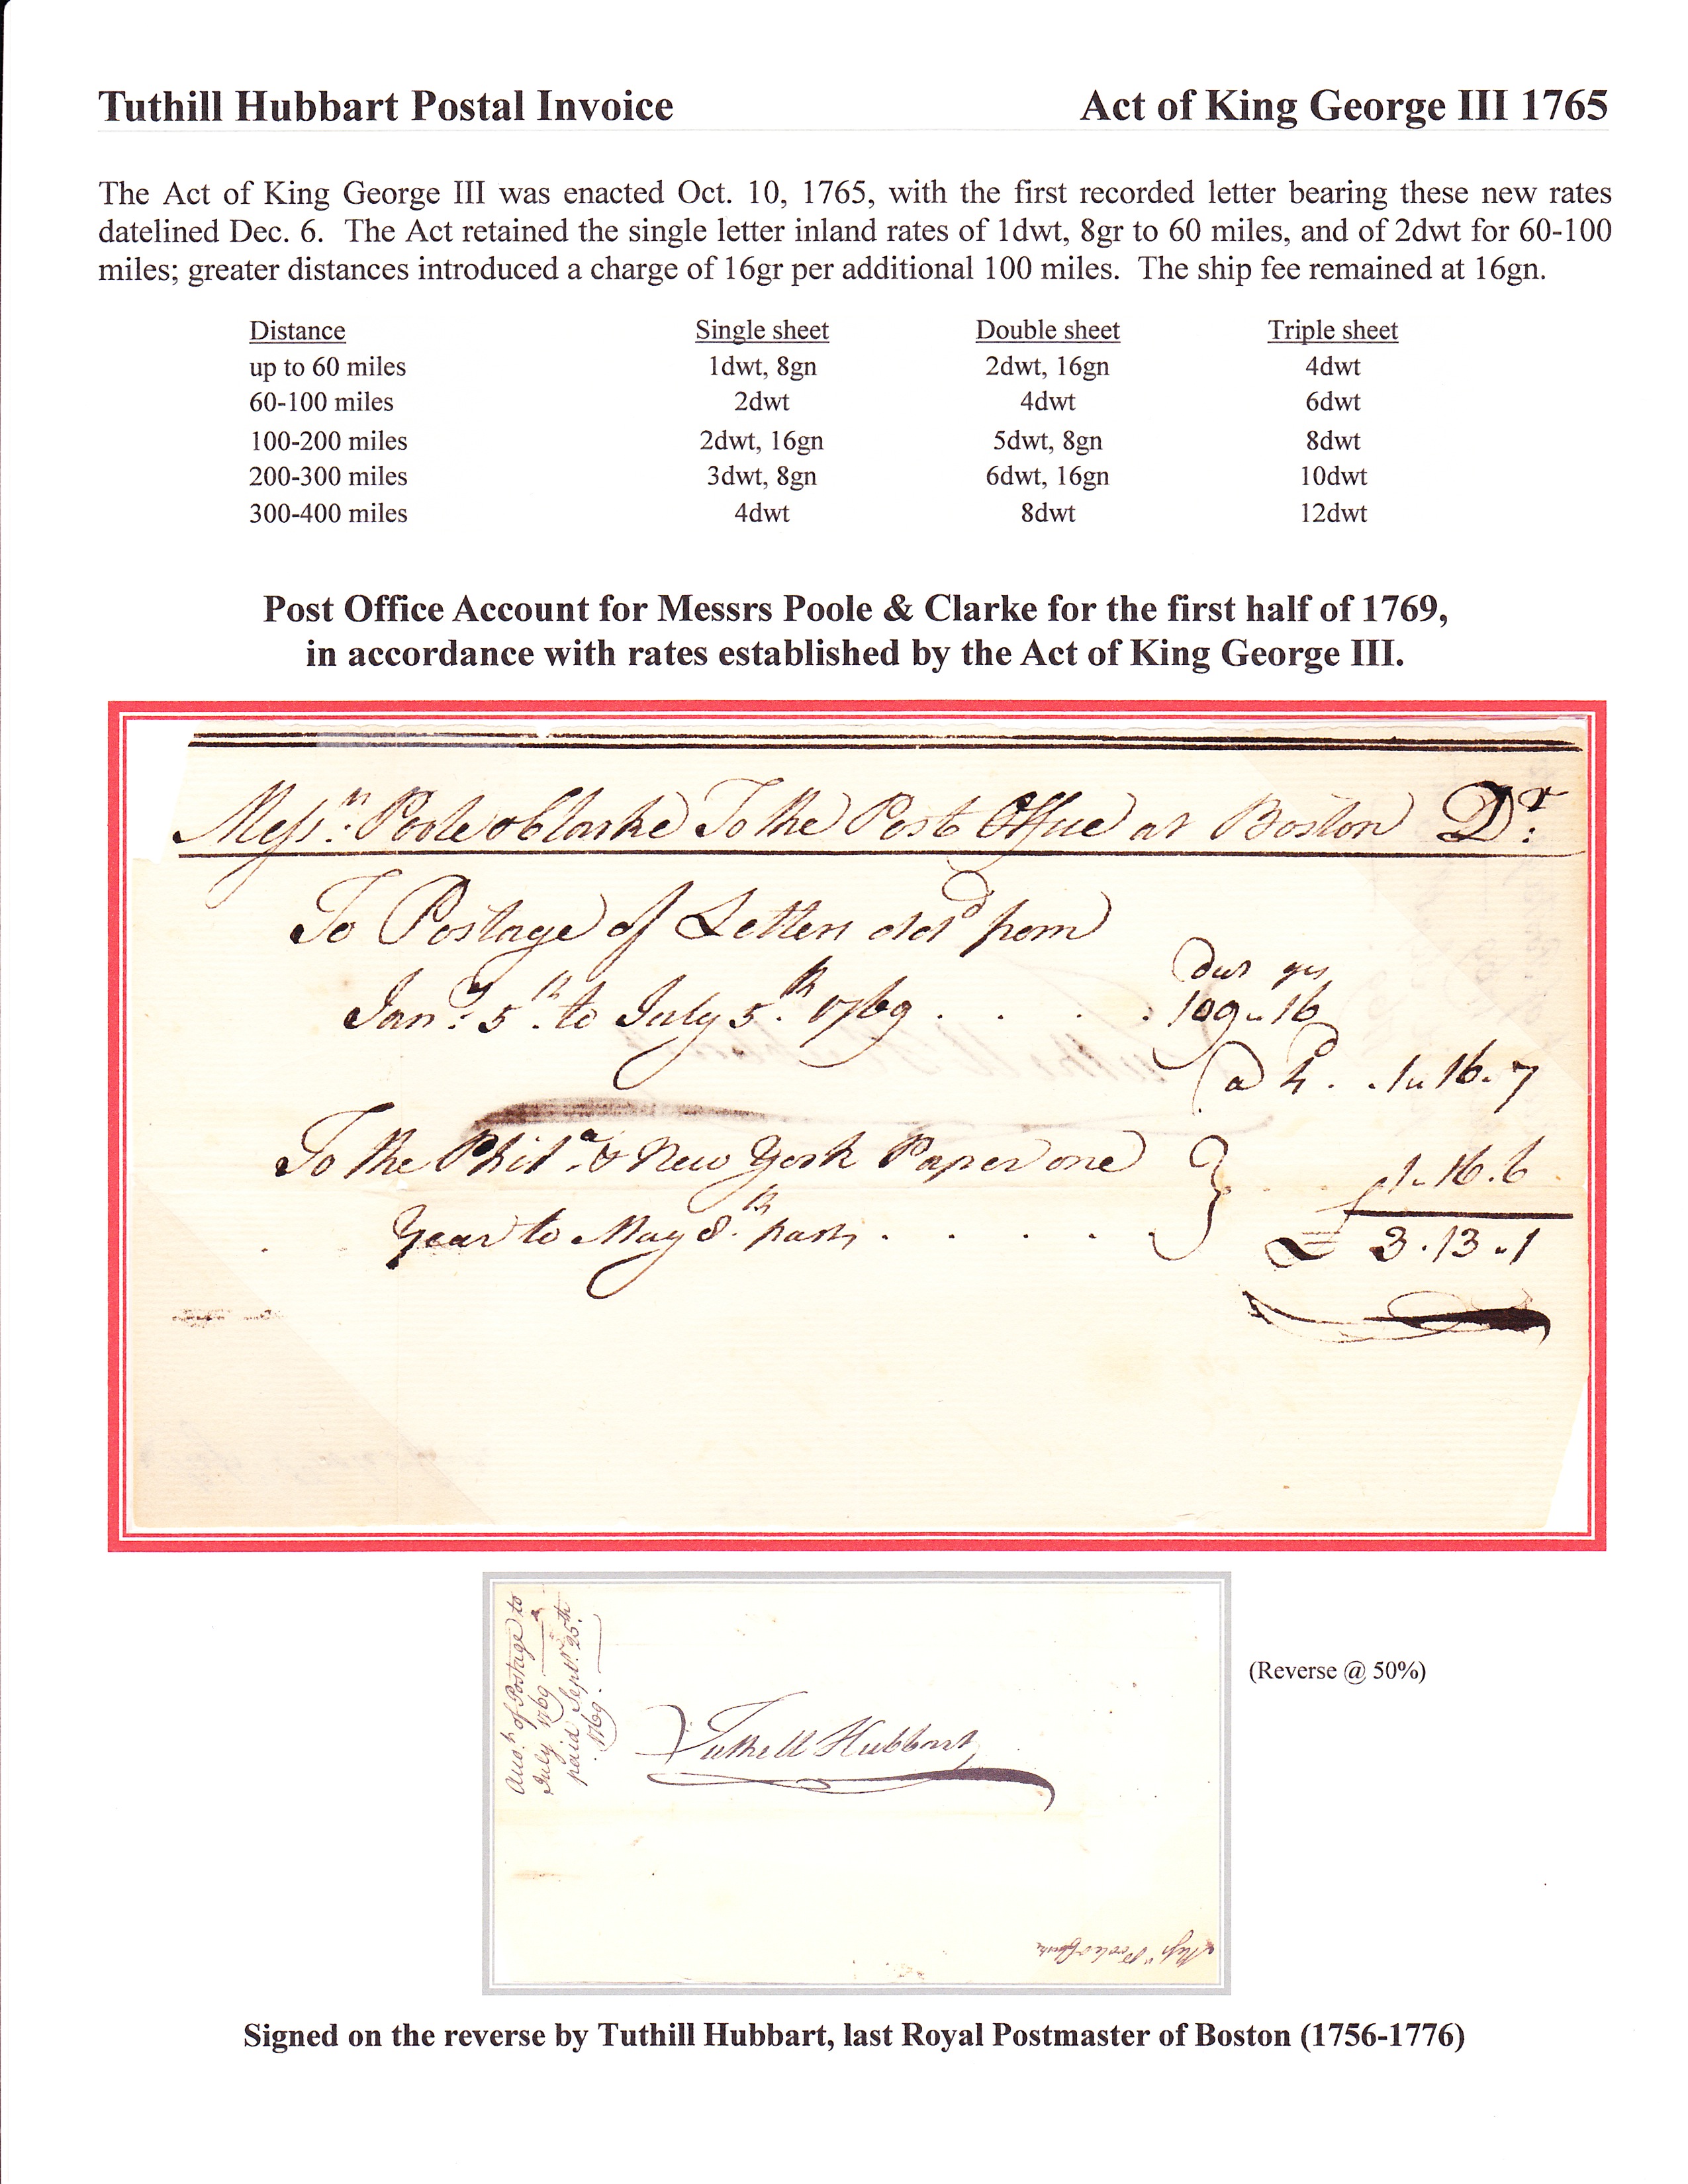 Tuthill Hubbart Postal Invoice Act of King George III 1765
The Act of King George III was enacted Oct. 10, 1765, with the first recorded letter bearing these new rates
datelined Dec. 6. The Act retained the single letter inland rates of 1dwt, 8gr to 60 miles, and of 2dwt for 60-100
miles; greater distances introduced a charge of 16gr per additional 100 miles. The ship fee remained at 16gn.
Distance Single sheet Double sheet Triple sheet
up to 60 miles 1dwt, 8gn 2dwt, 16gn 4dwt
60-100 miles 2dwt 4dwt 6dwt
100-200 miles 2dwt, 16gn 5dwt, 8gn 8dwt
200-300 miles 3dwt, 8gn 6dwt, 16gn 10dwt
300-400 miles 4dwt 8dwt 12dwt
Post Office Account for Messrs Poole & Clarke for the first half of 1769,
in accordance with rates established by the Act of King George III.
Messrs. Poole & Clarke To the Post Office at Boston Dr:
To Postage of Letters deld from
dwt grs
Jany. 5th. to July 5th. 1769 . . . . 109 " 16
a 4d . . 1 " 16 . 7
To the Phila. & New York Paper one } . . 1 " 16 . 6
Year to May 8th. past . . . . . £ 3 . 13 " 1
Auot. of Postage to
July 1769
paid Sept. 25th
1769.
Tuthill Hubbart
Messrs Poole & Clarke
(Reverse @ 50%)
Signed on the reverse by Tuthill Hubbart, last Royal Postmaster of Boston (1756-1776)